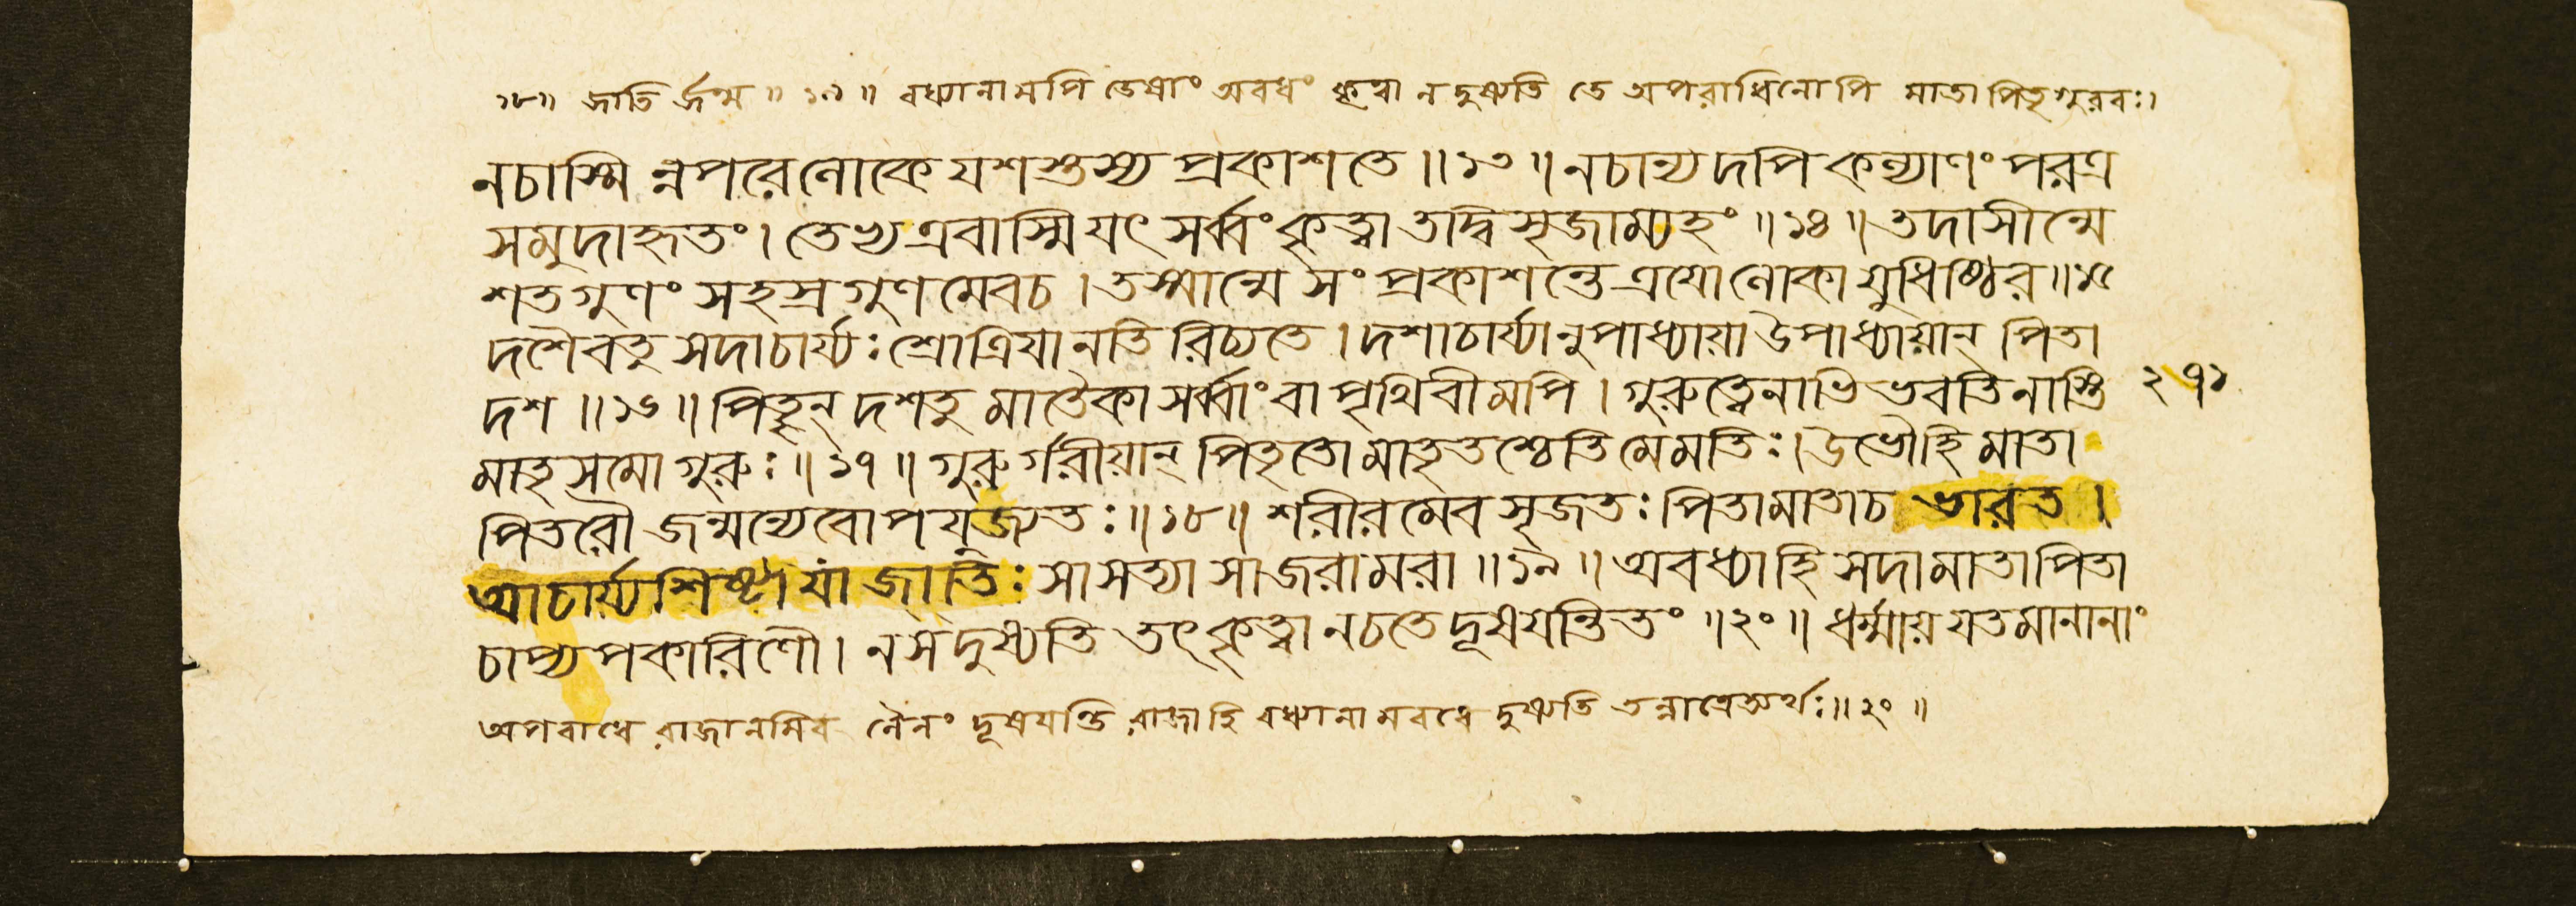 ১৮॥ জাতি র্জন্ম ॥ ১৯ ॥ বধ্যানামপি তেষাং অবধং কৃত্বা ন দুষ্যতি তে অপরাধিনোপি মাতাপিতৃগুরবঃ।
নচাস্মি ন্নপরে লোকে যশস্তস্য প্রকাশতে ॥ ১৩ ॥ নচান্যদপি কল্যাণং পরত্র
সমুদাহৃতং। তেভ্য এবাস্মি যৎ সর্ব্বং কৃত্বা তদ্বিসৃজাম্যহং ॥ ১৪ ॥ তদাসীন্মে
শতগুণং সহস্রগুণমেবচ। তস্মান্মে সংপ্রকাশন্তে ত্রয়োলোকা যুধিষ্ঠির ॥ ১৫
দশৈবতু সদাচার্য্যঃ শ্রোত্রিয়ানতিরিচ্যতে। দশাচার্য্যানুপাধ্যায়া উপাধ্যায়ান্ পিতা
দশ ॥ ১৬ ॥ পিতৄন্ দশতু মাতৈকা সর্ব্বাং বা পৃথিবীমপি। গুরুত্বেনাভিভবতি নাস্তি
২৭১
মাতৃসমো গুরুঃ ॥ ১৭ ॥ গুরুর্গরীয়ান্ পিতৃতো মাতৃতশ্চেতি মে মতিঃ। উভৌহি মাতা
পিতরৌ জন্মন্যেবোপযুজ্যতঃ ॥ ১৮ ॥ শরীরমেব সৃজতঃ পিতামাতাচ ভারত।
আচার্য্যশিষ্টা যা জাতিঃ সা সত্যা সাজরামরা ॥ ১৯ ॥ অবধ্যাহি সদা মাতা পিতা
চাপ্যপকারিণৌ। ন স দুষ্যতি তৎ কৃত্বা নচতে দূষয়ন্তি তং ॥ ২০ ॥ ধর্ম্মায় যতমানানাং
অপরাধে রাজানমিব নৈনং দূষয়ন্তি রাজাহি বধ্যানামবধে দুষ্যতি তন্নাত্রেত্যর্থঃ ॥ ২০ ॥